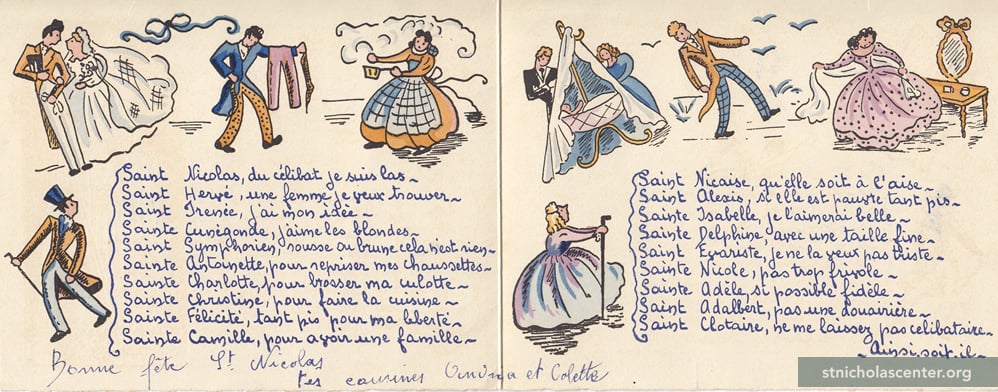 Saint Nicolas, du célibat je suis las~
Saint Hervé, une femme je veux trouver~
Saint Irenée, j'ai mon idée~
Sainte Cunégonde, j'aime les blondes~
Saint Symphorien, rousse ou brune cela n'est rien~
Sainte Antoinette, pour repriser mes chaussettes~
Sainte Charlotte, pour brosser ma culotte~
Sainte Christine, pour faire la cuisine~
Sainte Félicité, tant pis pour ma liberté~
Sainte Camille, pour avoir une famille~
Bonne fête St Nicolas
tes cousines et Colette
Saint Nicaise, qu'elle soit à l'aise~
Saint Alexis, si elle est pauvre tant pis~
Sainte Isabelle, je l'aimerai belle~
Sainte Delphine, avec une taille fine~
Saint Evariste, je ne la veux pas triste~
Sainte Nicole, pas trop frivole~
Sainte Adèle, si possible fidèle~
Saint Adalbert, pas une douairière~
Saint Clotaire, ne me laissez pas célibataire~
~Ainsi soit il~
stnicholascenter.org